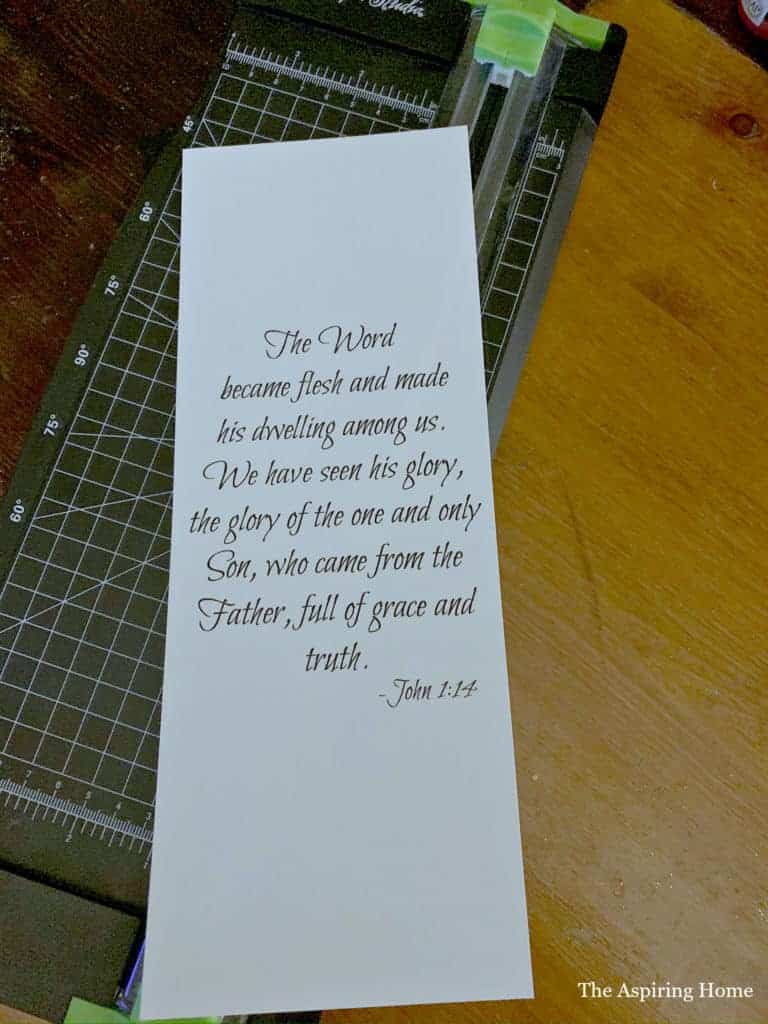 Studio
45°
60°
75°
90°
75°
60°
The Word
became flesh and made
his dwelling among us.
We have seen his glory,
the glory of the one and only
Son, who came from the
Father, full of grace and
truth.
-John 1:14
The Aspiring Home